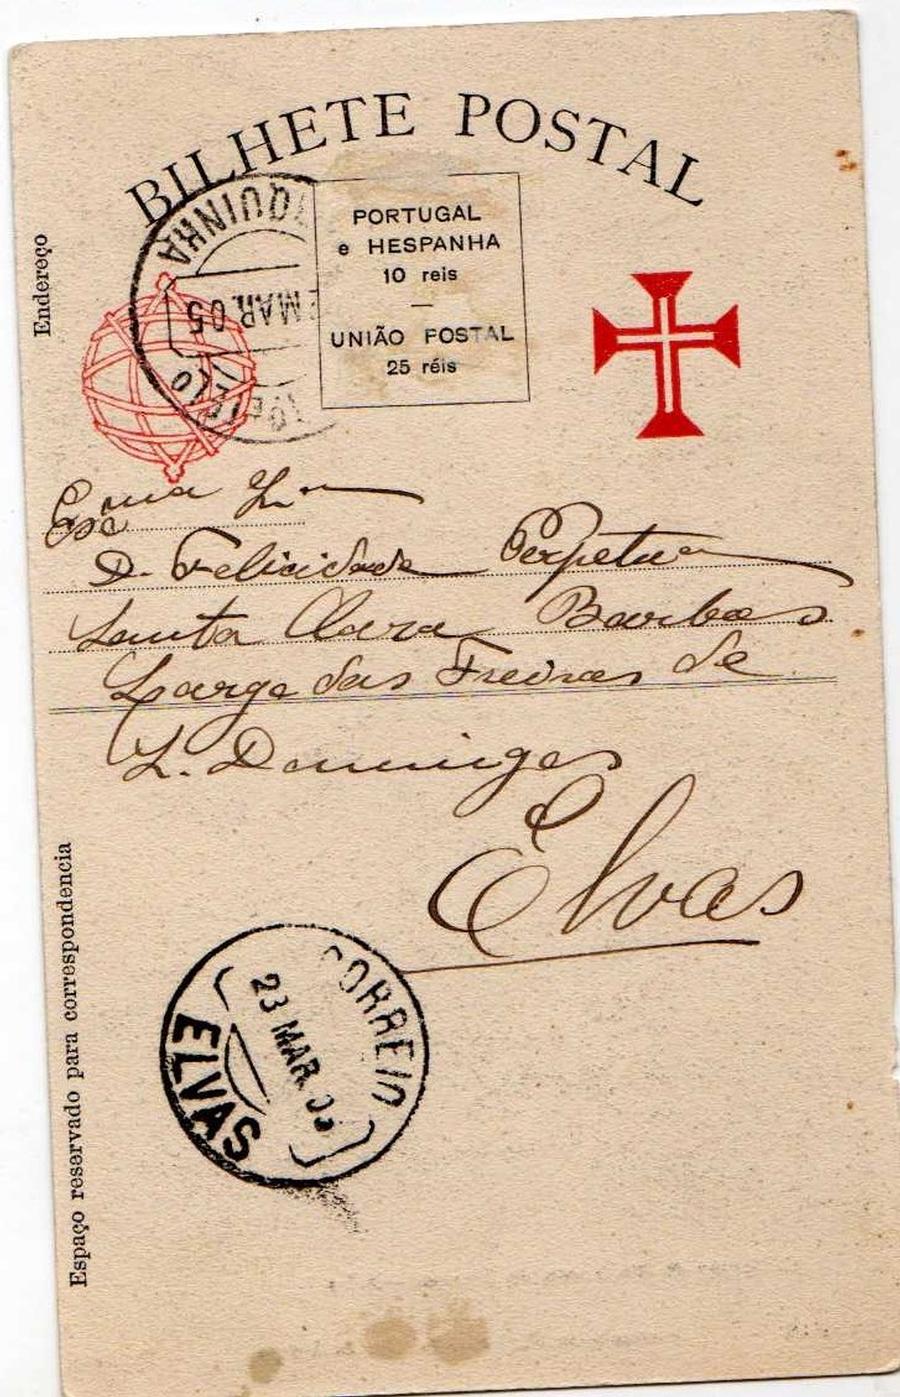 BILHETE POSTAL
Endereço
QUINHA
MAR. 05
PORTUGAL
e HESPANHA
10 reis
UNIÃO POSTAL
25 réis
Exma
D. Felicidade Perpetua
Santa Clara Barbas
Largo das Freiras de
S. Domingos
Elvas
Espaço reservado para correspondencia
CORREIO
23 MAR. 05
ELVAS